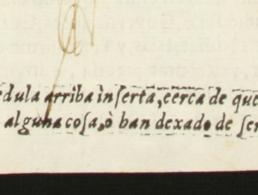 edula arriba inserta, cerca de que
alguna cosa, ò han dexado de ser